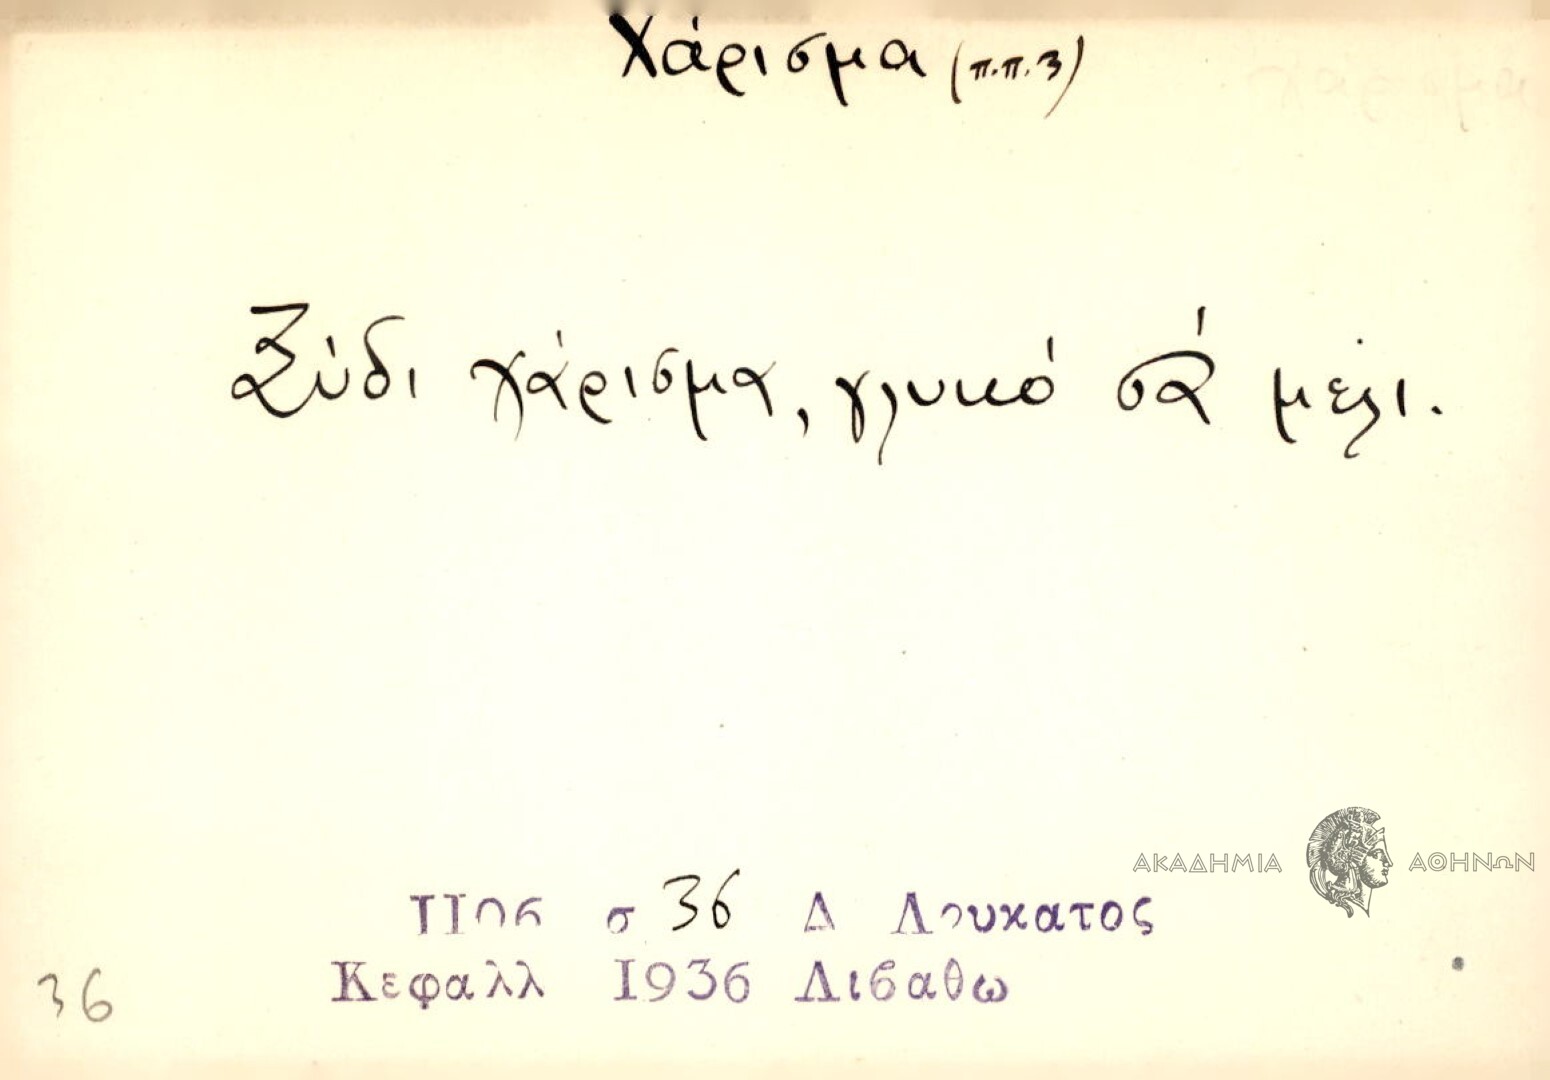 Χάρισμα (π.π.3)
Ξύδι χάρισμα, γλυκό σά μέλι.
ΑΚΑΔΗΜΙΑ ΑΘΗΝΩΝ
σ 36 Δ Λουκατος
Κεφαλλ 1936 Λιβαθω
36